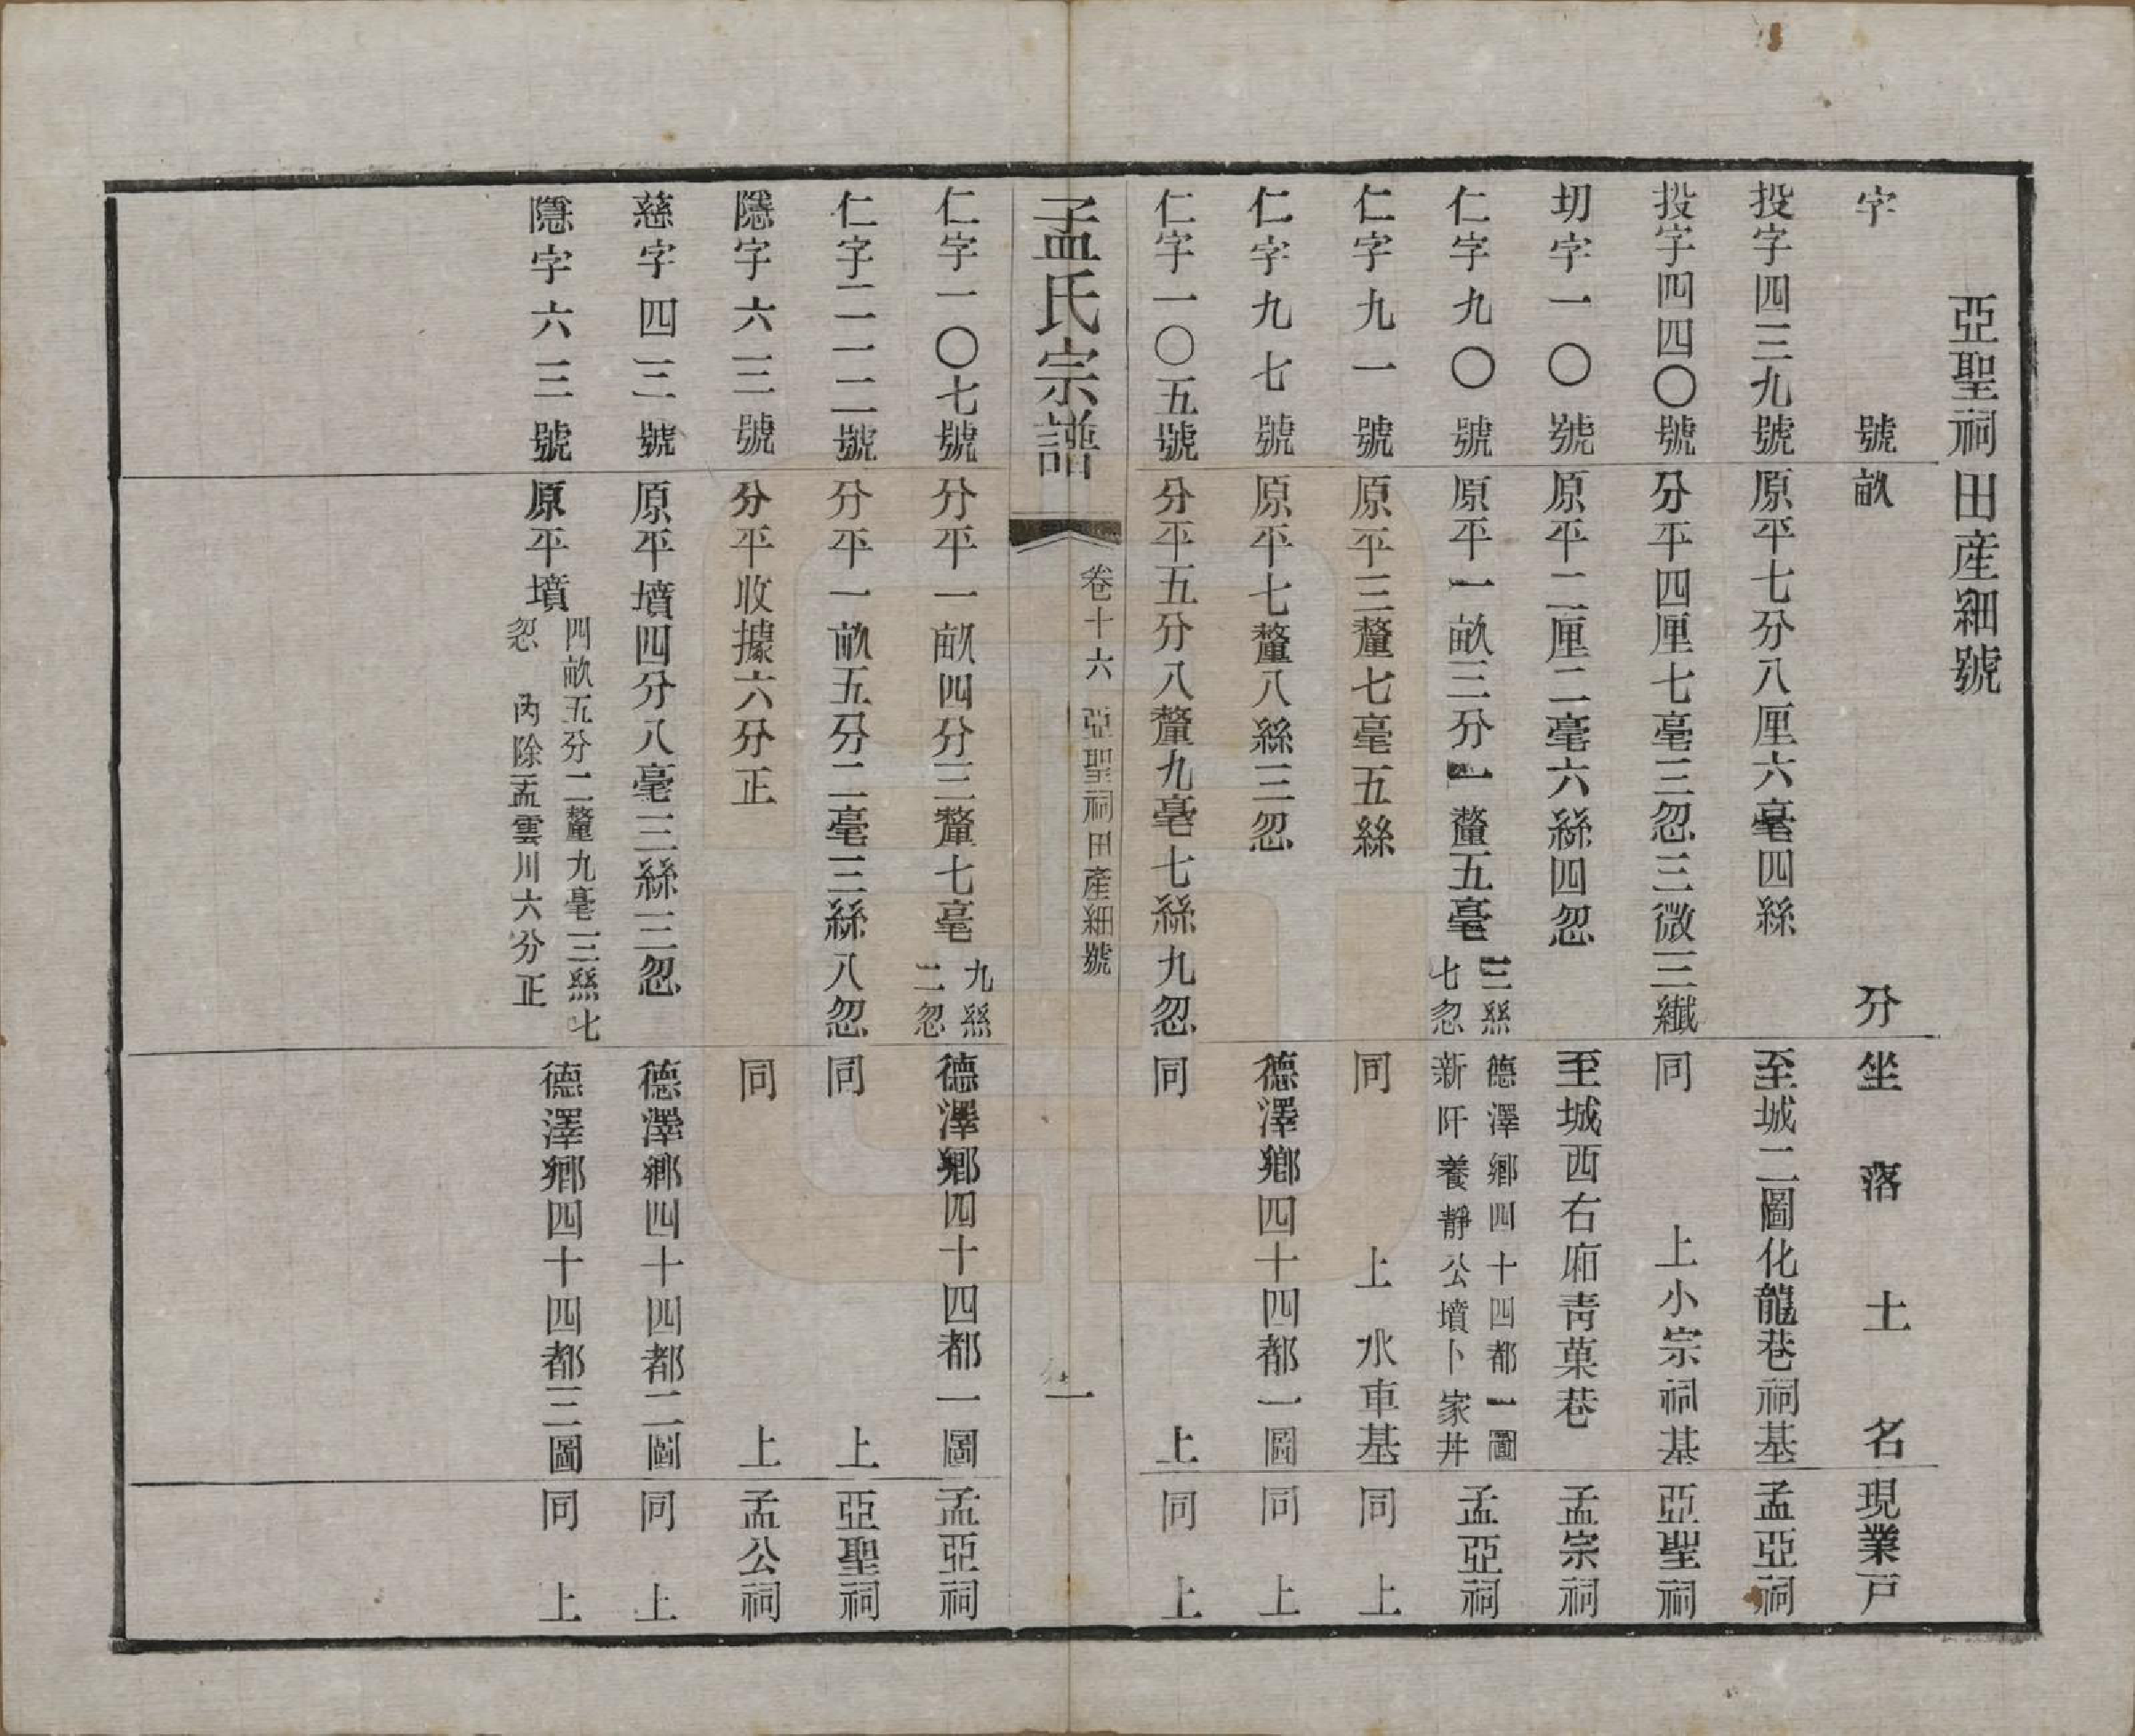 亞聖祠田產細號
字號 畝分 坐落土名 現業戶
投字四三九號 原平七分八厘六毫四絲 至城二圖化龍巷祠基 孟亞祠
投字四四〇號 分平四厘七毫三忽三微三纖 同上小宗祠基 亞聖祠
切字一〇號 原平二厘二毫六絲四忽 至城西右廂青菓巷 孟宗祠
仁字九〇號 原平一畝三分一釐五毫三絲七忽 德澤鄉四十四都一圖新阡養靜公墳卜家丼 孟亞祠
仁字九一號 原平三釐七毫五絲 同上水車基 同上
仁字九七號 原平七釐八絲三忽 德澤鄉四十四都一圖 同上
仁字一〇五號 分平五分八釐九毫七絲九忽 同上 同上
孟氏宗譜 卷十六 亞聖祠田產細號 一
仁字一〇七號 分平一畝四分三釐七毫九絲二忽 德澤鄉四十四都一圖 孟亞祠
仁字二一一二號 分平一畝五分二毫三絲八忽 同上 亞聖祠
隱字六三號 分平收據六分正 同上 孟公祠
慈字四三號 原平墳四分八毫三絲三忽 德澤鄉四十四都二圖 同上
隱字六三號 原平墳四畝五分二釐九毫三絲七忽 內除孟雲川六分正 德澤鄉四十四都三圖 同上